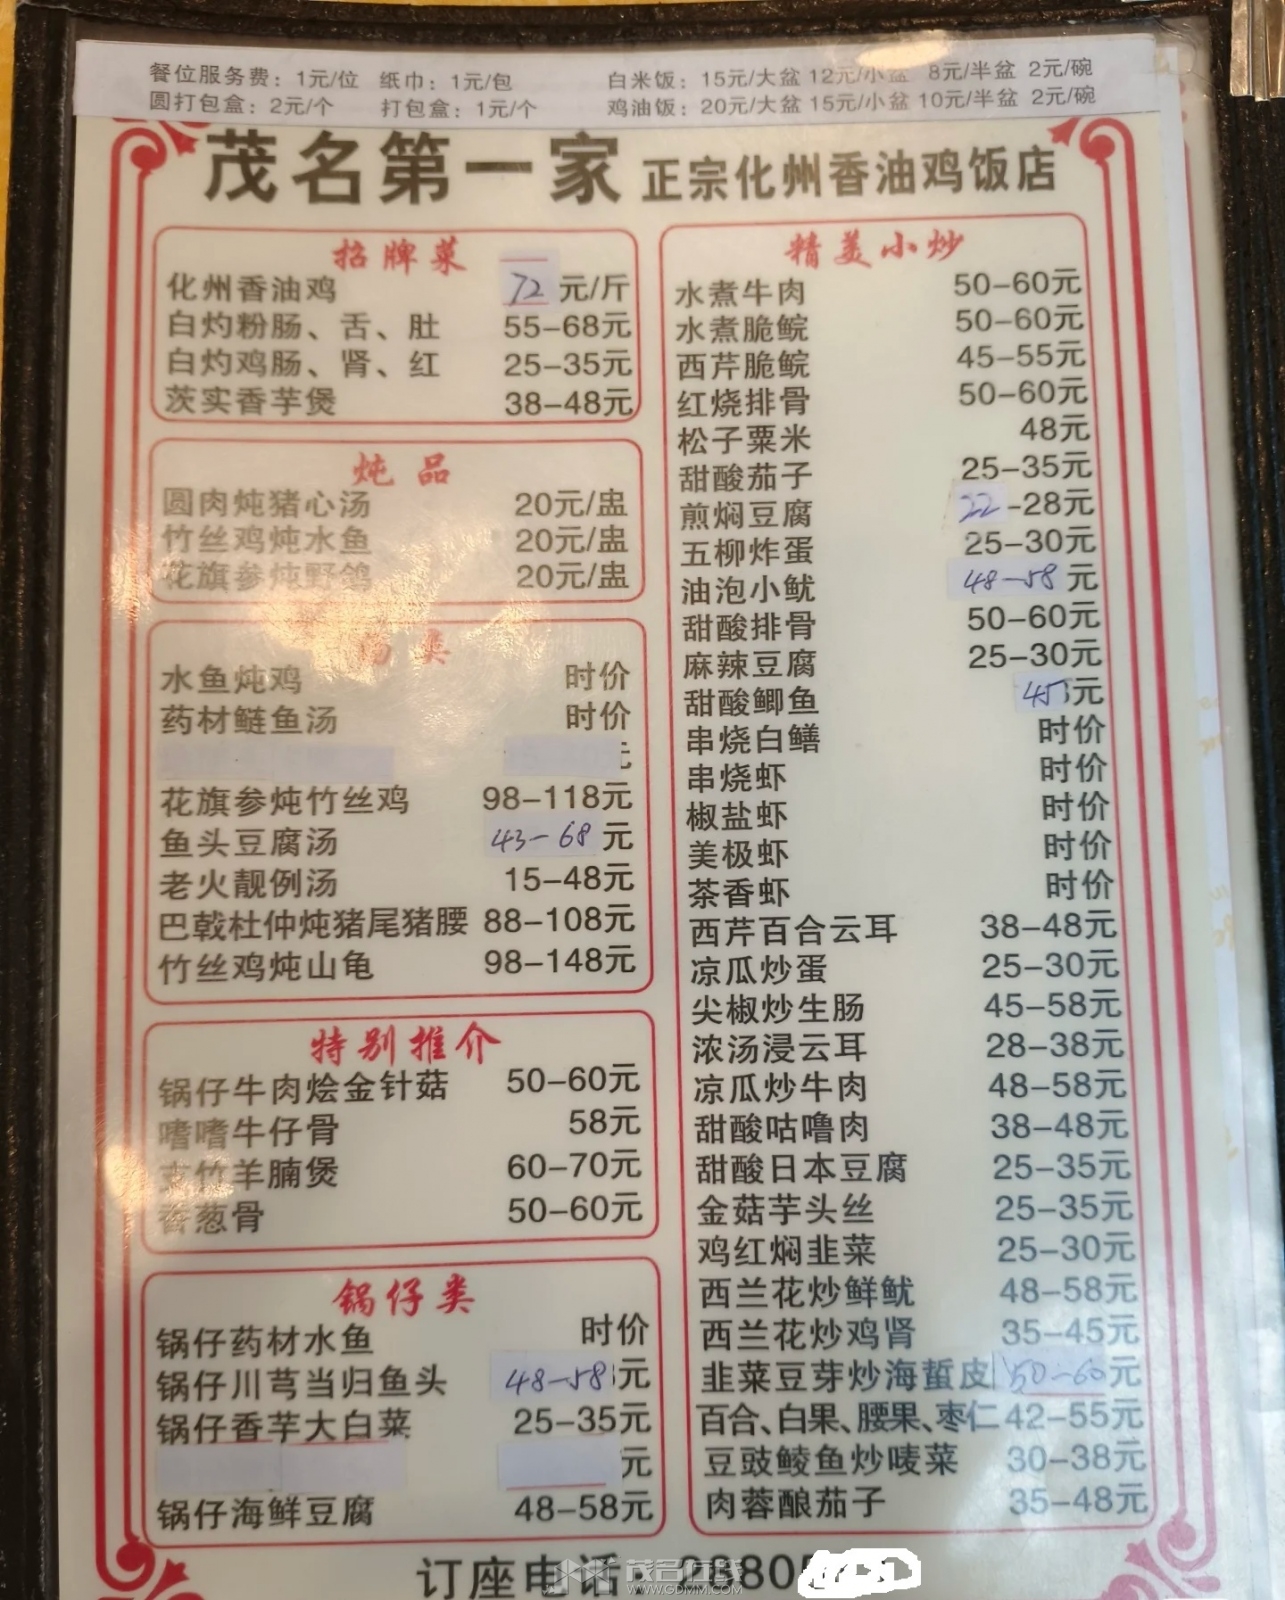 餐位服务费：1元/位 纸巾：1元/包 白米饭：15元/大盆 12元/小盆 8元/半盆 2元/碗
圆打包盒：2元/个 打包盒：1元/个 鸡油饭：20元/大盆 15元/小盆 10元/半盆 2元/碗
茂名第一家 正宗化州香油鸡饭店
招牌菜
化州香油鸡 72元/斤
白灼粉肠、舌、肚 55-68元
白灼鸡肠、肾、红 25-35元
茨实香芋煲 38-48元
炖品
圆肉炖猪心汤 20元/盅
竹丝鸡炖水鱼 20元/盅
花旗参炖野鸽 20元/盅
类
水鱼炖鸡 时价
药材鲢鱼汤 时价
元
花旗参炖竹丝鸡 98-118元
鱼头豆腐汤 43-68元
老火靓例汤 15-48元
巴戟杜仲炖猪尾猪腰 88-108元
竹丝鸡炖山龟 98-148元
特别推介
锅仔牛肉烩金针菇 50-60元
嗜嗜牛仔骨 58元
支竹羊腩煲 60-70元
香葱骨 50-60元
锅仔类
锅仔药材水鱼 时价
锅仔川芎当归鱼头 48-58元
锅仔香芋大白菜 25-35元
元
锅仔海鲜豆腐 48-58元
精美小炒
水煮牛肉 50-60元
水煮脆鲩 50-60元
西芹脆鲩 45-55元
红烧排骨 50-60元
松子粟米 48元
甜酸茄子 25-35元
煎焖豆腐 22-28元
五柳炸蛋 25-30元
油泡小鱿 48-58元
甜酸排骨 50-60元
麻辣豆腐 25-30元
甜酸鲫鱼 45元
串烧白鳝 时价
串烧虾 时价
椒盐虾 时价
美极虾 时价
茶香虾 时价
西芹百合云耳 38-48元
凉瓜炒蛋 25-30元
尖椒炒生肠 45-58元
浓汤浸云耳 28-38元
凉瓜炒牛肉 48-58元
甜酸咕噜肉 38-48元
甜酸日本豆腐 25-35元
金菇芋头丝 25-35元
鸡红焖韭菜 25-30元
西兰花炒鲜鱿 48-58元
西兰花炒鸡肾 35-45元
韭菜豆芽炒海蜇皮 50-60元
百合、白果、腰果、枣仁 42-55元
豆豉鲮鱼炒唛菜 30-38元
肉蓉酿茄子 35-48元
订座电话：2880
茂名在线
WWW.GDMM.COM